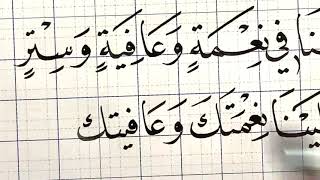 فِي نِعْمَةٍ وَعَافِيَةٍ وَسِتْرٍ
نِعْمَتَكَ وَعَافيتك